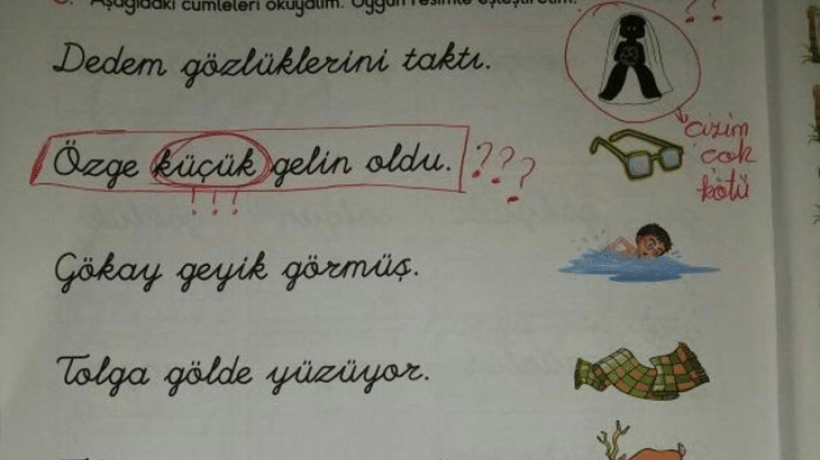 Aşağıdaki cümleleri okuyalım. Uygun resimle eşleştirelim.
??
Dedem gözlüklerini taktı.
Çizim
çok
kötü
Özge küçük gelin oldu. ???
!!!
Gökay geyik görmüş.
Tolga gölde yüzüyor.